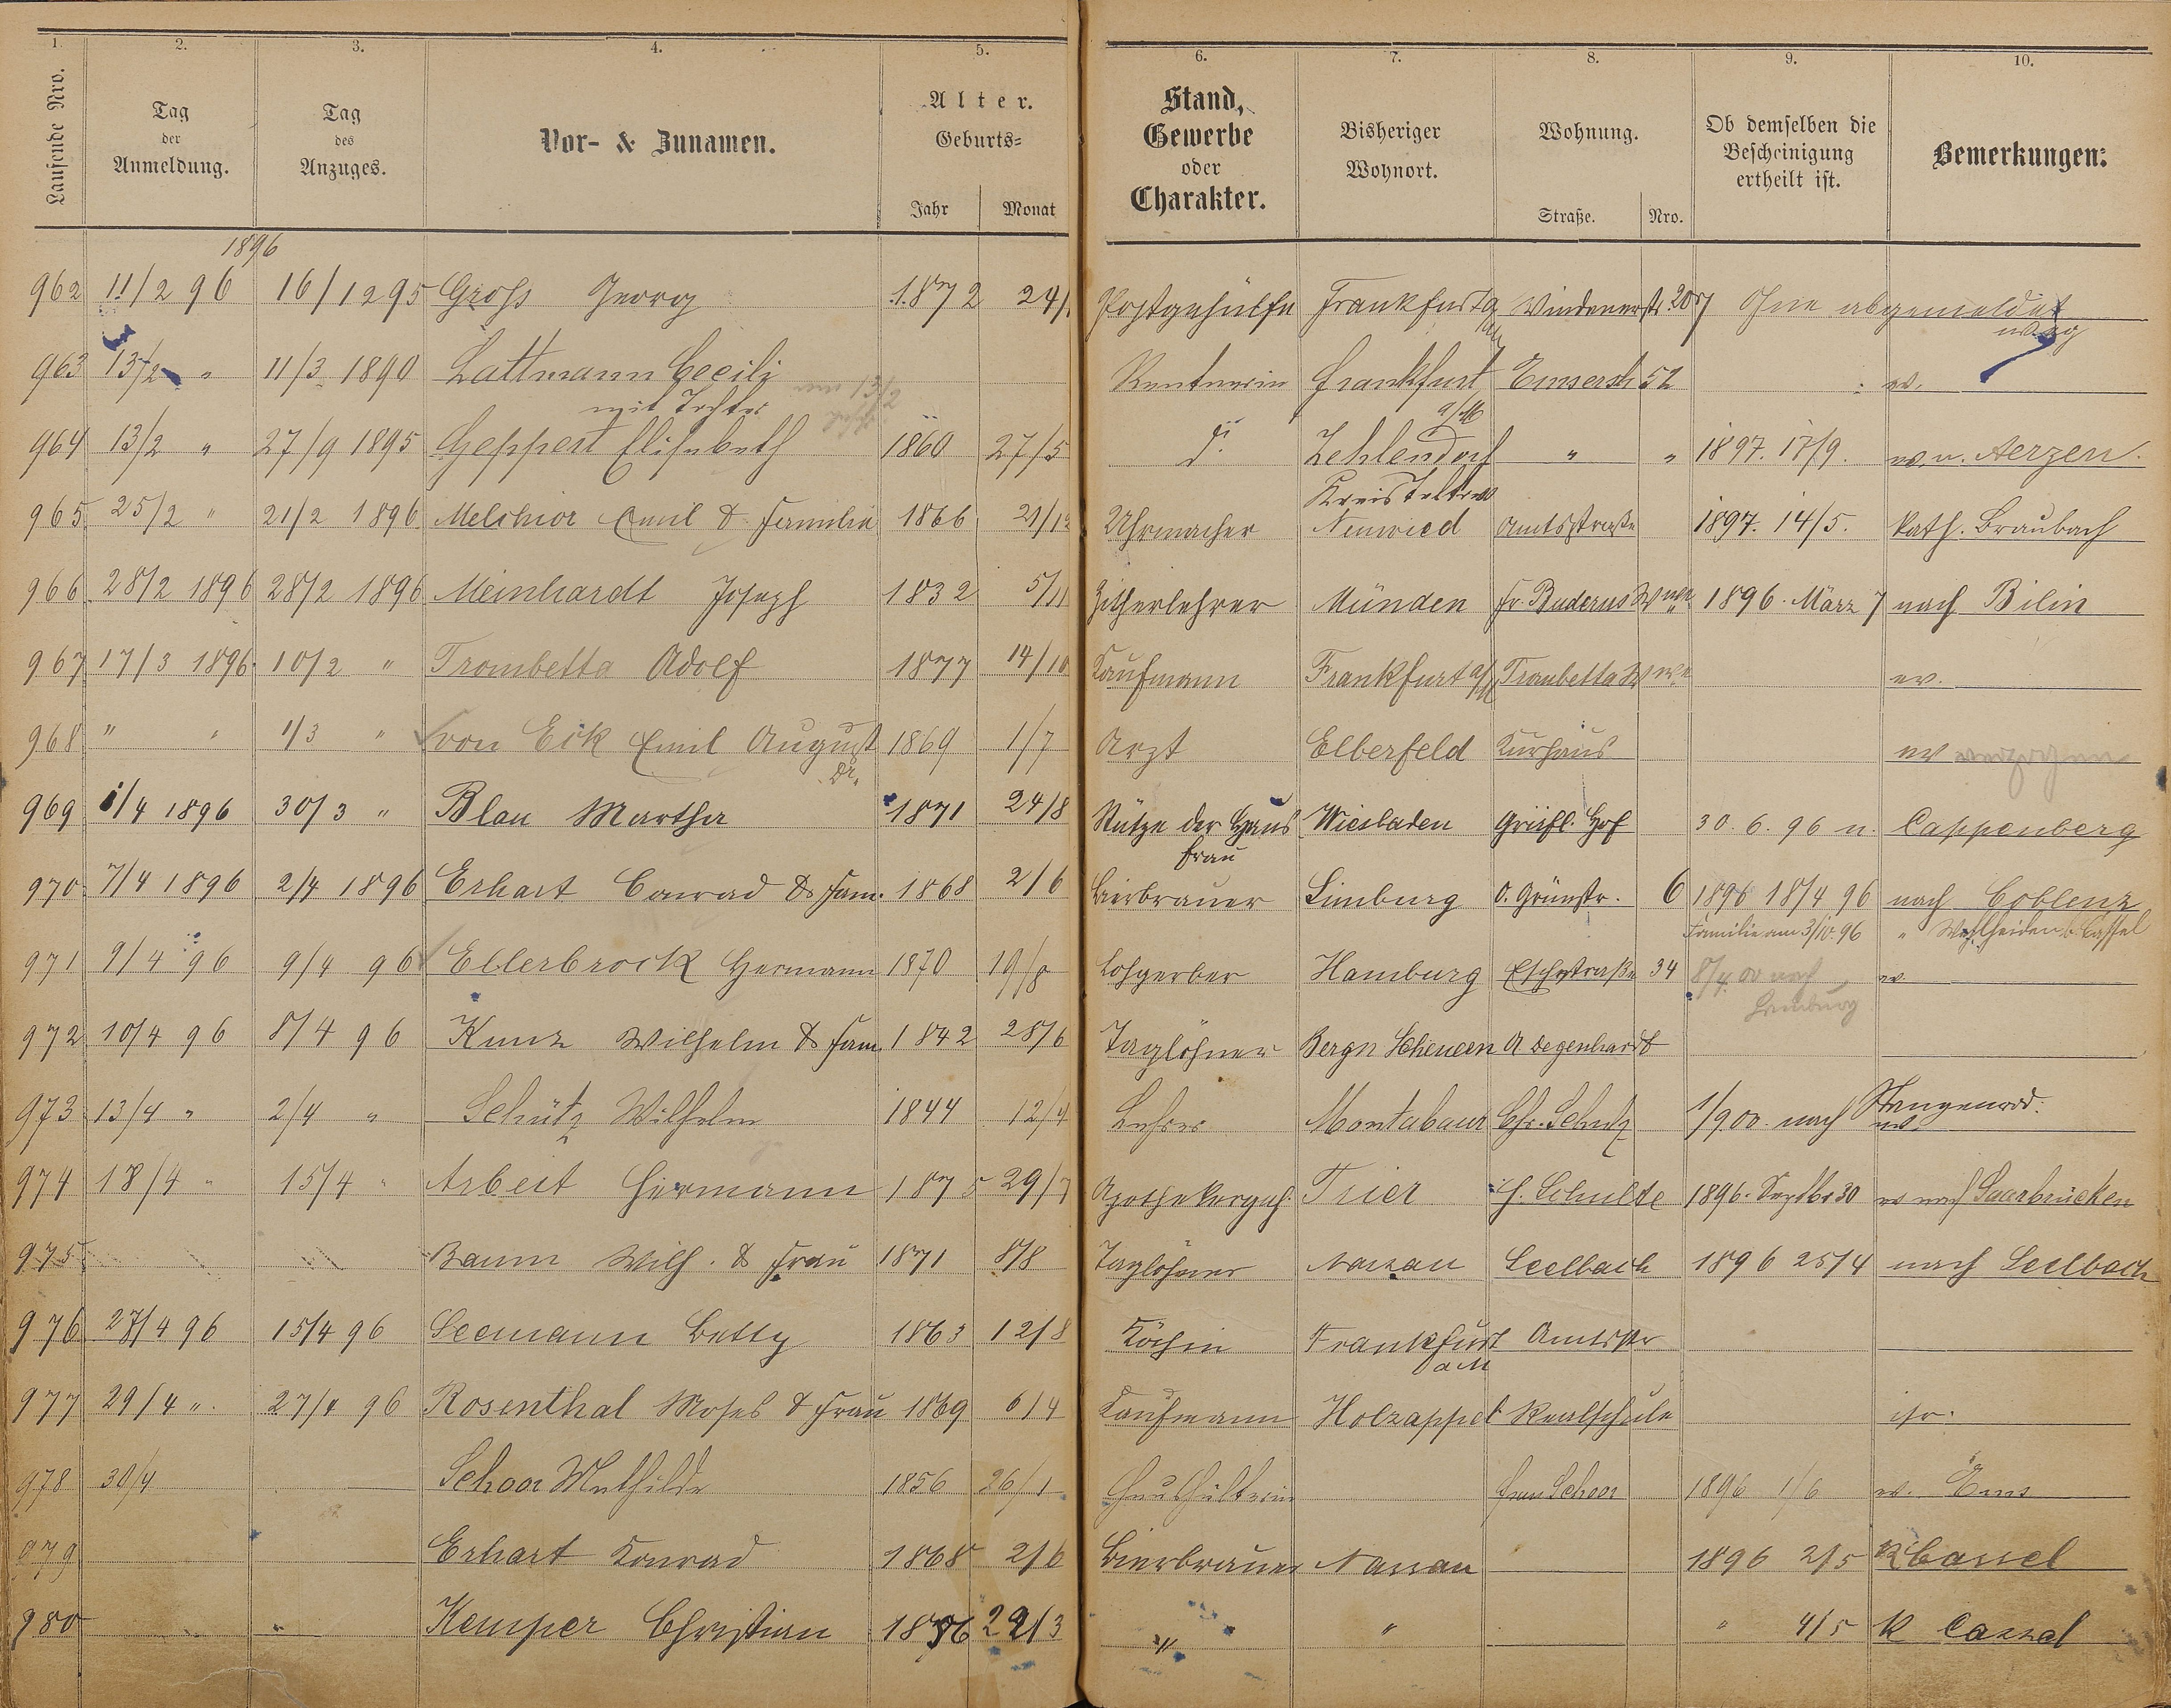 1. 2. 3. 4. 5. 6. 7. 8. 9. 10.
Laufende Nro.
Tag der Anmeldung.
Tag des Anzuges.
Vor- & Zunamen.
Alter. Geburts= Jahr Monat
Stand, Gewerbe oder Charakter.
Bisheriger Wohnort.
Wohnung. Straße. Nro.
Ob demselben die Bescheinigung ertheilt ist.
Bemerkungen:
1896
962 11/2 96 16/12 95 Groß Georg 1872 24/ Postgehülfe Frankfurt a/M Windenerstr. 20 abgemeldet weg
963 13/2 " 11/3 1890 Lattmann Cecili Rentnerin Frankfurt Emserstr 52 ev.
mit Tochter a/M
964 13/2 " 27/9 1895 Geppert Elisabeth 1860 27/5 do. Zehlendorf " " 1897. 17/9. ev. n. Aerzen.
Kreis Teltow
965 25/2 " 21/2 1896 Melchior Emil & Familie 1866 21/12 Uhrmacher Neuwied Amtsstraße 1897. 14/5. kath. Braubach
966 28/2 1896 28/2 1896 Meinhardt Joseph 1832 5/11 Zitherlehrer Münden Fr. Buderus Wwe. 1896. März 7 nach Bilin
967 17/3 1896. 10/2 " Trombetta Adolf 1877 14/10 Kaufmann Frankfurt a/M Trombetta Wwe. ev.
968 " " 1/3 " von Eick Emil August 1869 1/7 Arzt Elberfeld Kurhaus ev
Dr.
969 1/4 1896 30/3 " Blau Martha 1871 24/8 Stütze der Haus Wiesbaden Gräfl. Hof 30. 6. 96 n. Cappenberg
frau
970 7/4 1896 2/4 1896 Erhart Conrad & Fam. 1868 2/6 Bierbrauer Limburg O. Grünstr. 6 1896 18/4 96 nach Coblenz
Familie am 3/10. 96 " Wehlheiden b. Cassel
971 9/4 96 9/4 96 Ellerbrock Hermann 1870 19/8 Lohgerber Hamburg Eschstraße 34 8/4. 00 nach ev.
972 10/4 96 8/4 96 Kunz Wilhelm & Fam. 1842 28/6 Taglöhner Bergn Scheuern A Degenhardt
973 13/4 " 2/4 " Schütz Wilhelm 1844 12/4 Lehrer Montabaur Chr. Schutz 1/9 00. nach Stangenrod. ev.
974 18/4 " 15/4 " Arbeit Hermann 1875 29/7 Apothekergeh. Trier H. Schulde 1896. Septbr 30 ev nach Saarbrücken
975 Baum Wilh. & Frau 1871 8/8 Taglöhner Nassau Seelbach 1896 25/4 nach Seelbach
976 27/4 96 15/4 96 Seemann Betty 1863 12/8 Köchin Frankfurt Amtsstr
a M
977 29/4 ". 27/4 96 Rosenthal Moses & Frau 1869 6/4 Kaufmann Holzappel Realschule isr.
978 30/4 Schoor Mathilde 1856 26/1 Haushälterin Frau Schoor 1896 1/6 ev. Ems
979 Erhart Konrad 1868 2/6 Bierbrauer Nassau 1896 2/5 K Cassel
980 " Kemper Christian 1876 22/3 " " " 4/5 K Cassel